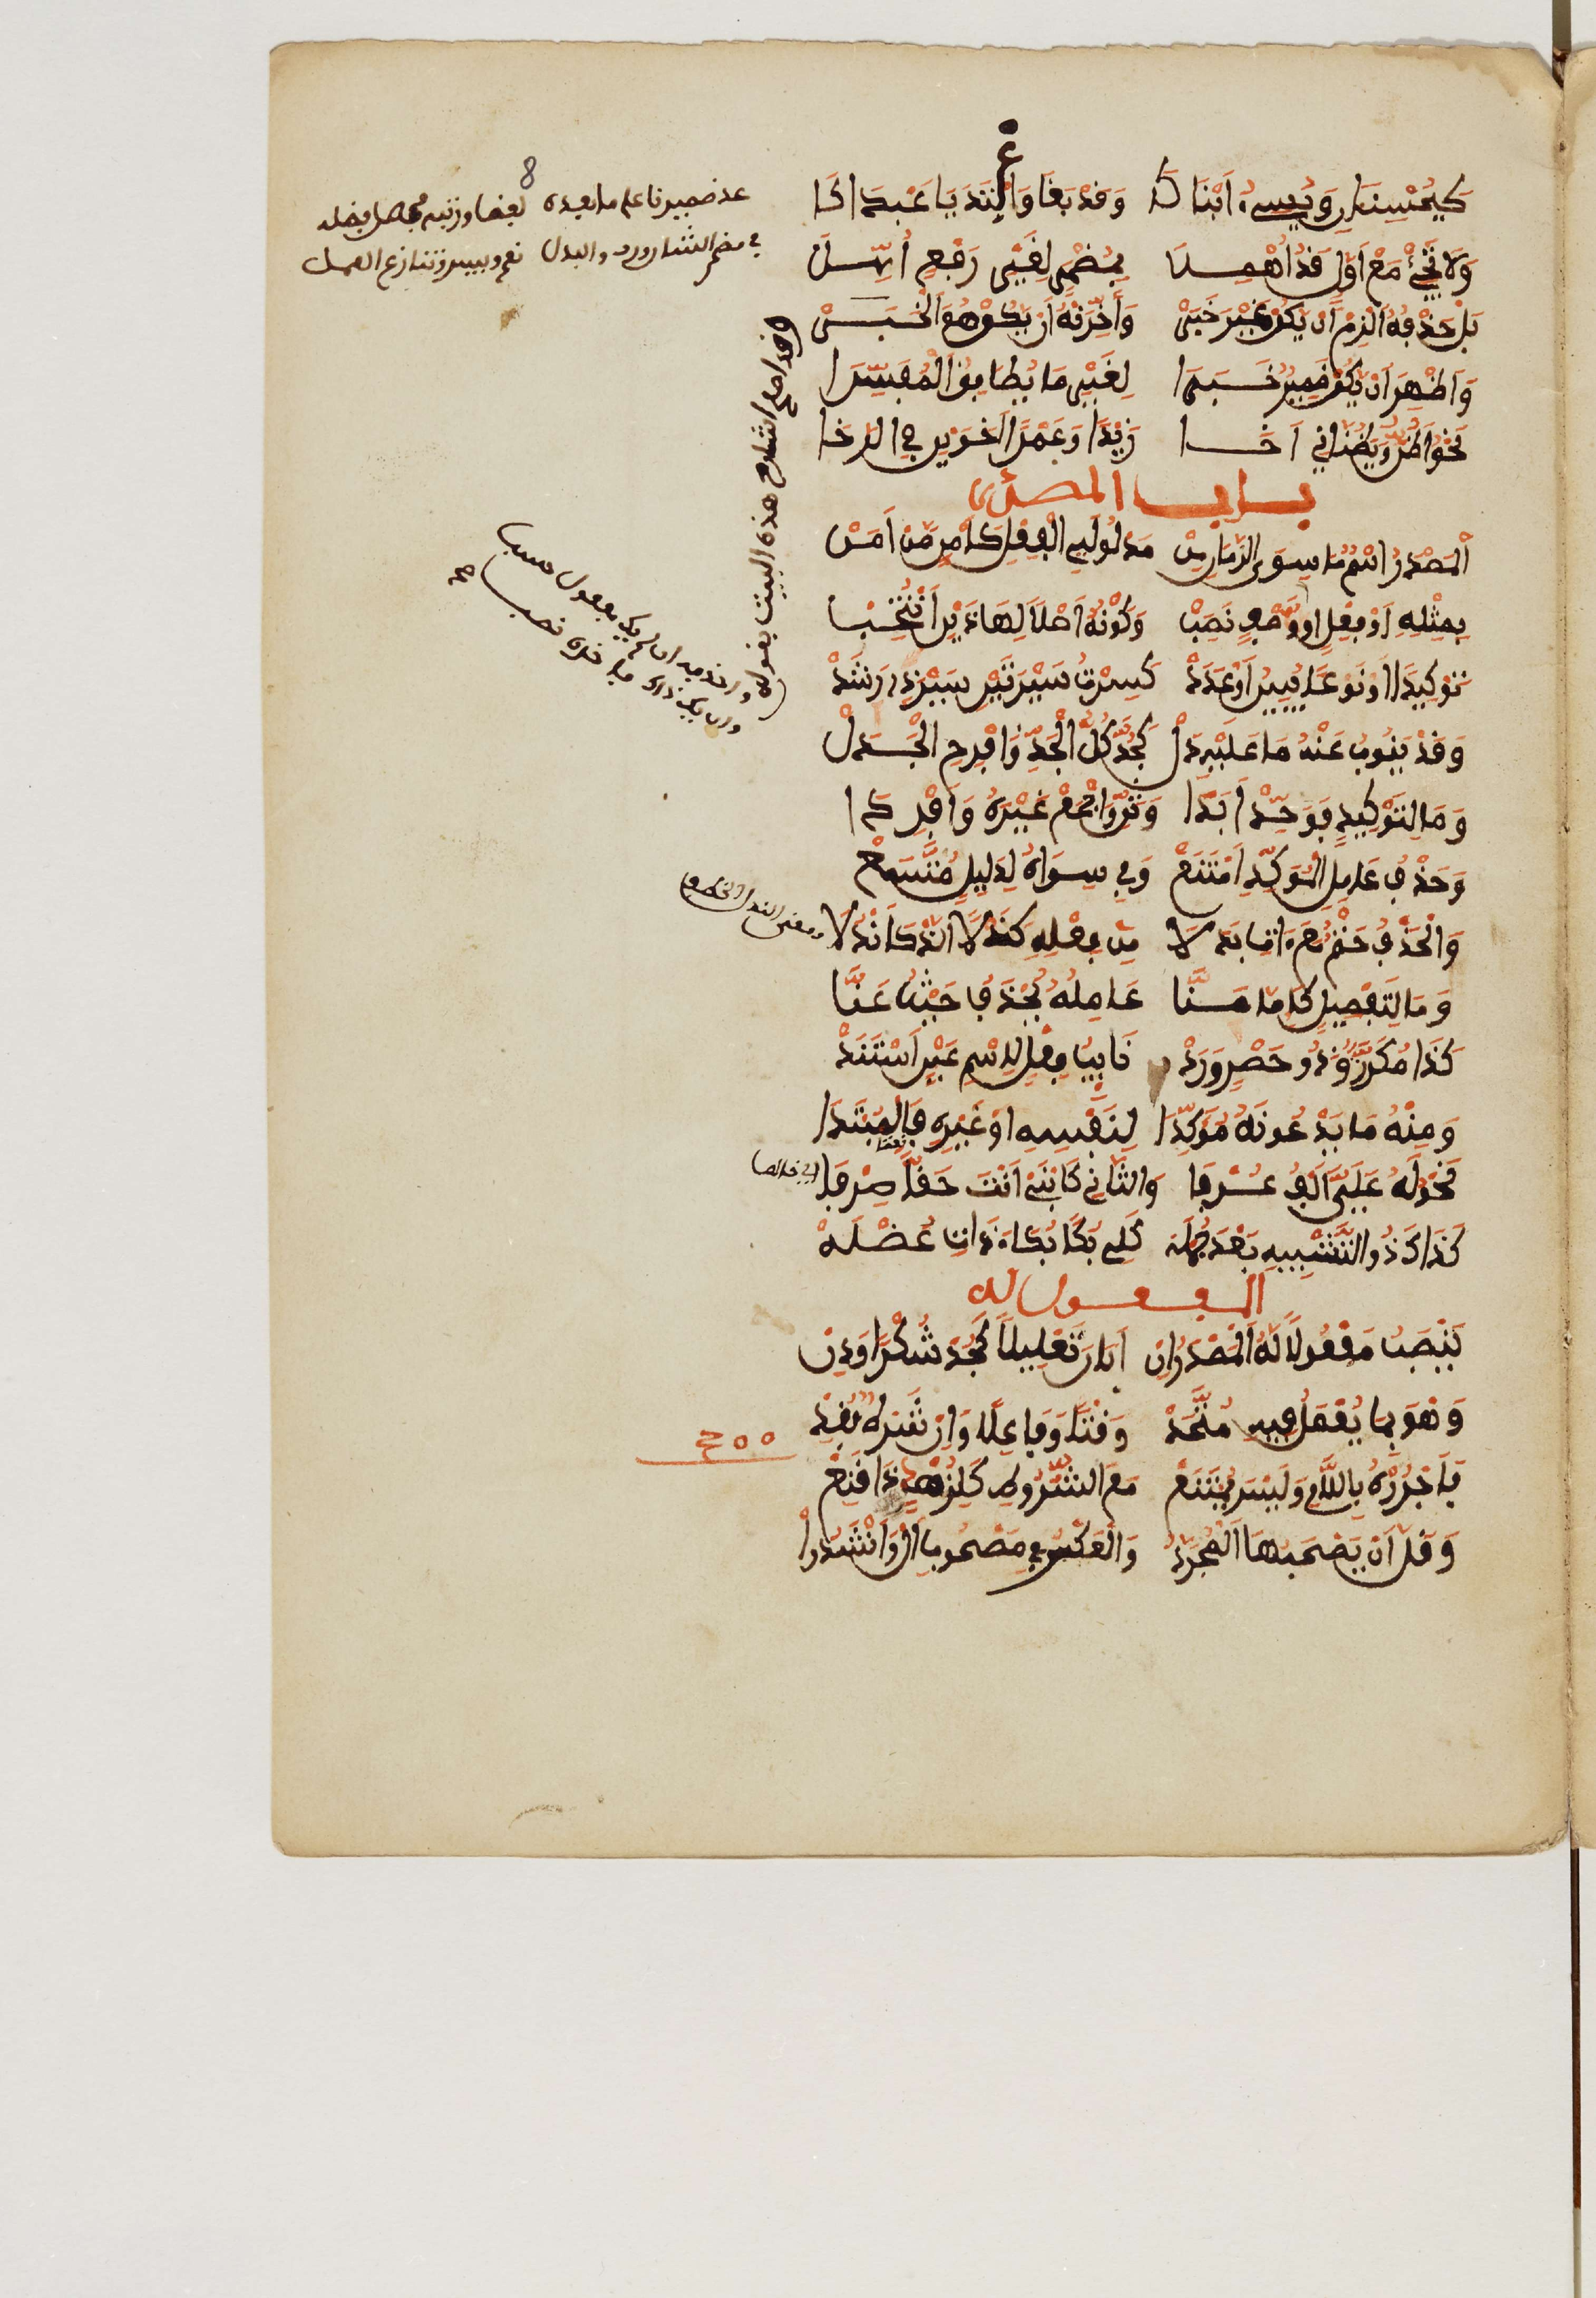 كَيُحْسِنَانِ وَيُسِيءُ ابْنَاكَا وَقَدْ بَغَى وَاعْتَدَيَا عَبْدَاكَا
وَلَا تَجِئْ مَعْ أَوَّلٍ قَدُ اهْمِلَا بِمُضْمَرٍ لِغَيْرِ رَفْعٍ أُوهِلَا
بَلْ حَذْفَهُ الْزَمْ إِنْ يَكُنْ غَيْرَ خَبَرْ وَأَخِّرَنْهُ إِنْ يَكُنْ هُوَ الْخَبَرْ
وَأَظْهِرَ انْ يَكُنْ ضَمِيرٌ خَبَرَا لِغَيْرِ مَا يُطَابِقُ الْمُفَسِّرَا
نَحْوُ أَظُنُّ وَيَظُنَّانِي أَخَا زَيْدًا وَعَمْرًا أَخَوَيْنِ فِي الرَّخَا
باب المصدر
الْمَصْدَرُ اسْمُ مَا سِوَى الزَّمَانِ مِنْ مَدْلُولَيِ الْفِعْلِ كَأَمْنٍ مِنْ أَمِنْ
بِمِثْلِهِ أَوْ فِعْلٍ أوْ وَصْفٍ نُصِبْ وَكَوْنُهُ أَصْلًا لِهَذَيْنِ انْتُخِبْ
تَوْكِيدًا اوْ نَوْعًا يُبِينُ أَوْ عَدَدْ كَسِرْتُ سَيْرَتَيْنِ سَيْرَ ذِي رَشَدْ
وَقَدْ يَنُوبُ عَنْهُ مَا عَلَيْهِ دَلْ كَجِدَّ كُلَّ الْجِدِّ وَافْرَحِ الْجَذَلْ
وَمَا لِتَوْكِيدٍ فَوَحِّدْ أَبَدَا وَثَنِّ وَاجْمَعْ غَيْرَهُ وَأَفْرِدَا
وَحَذْفُ عَامِلِ الْمُؤَكِّدِ امْتَنَعْ وَفِي سِوَاهُ لِدَلِيلٍ مُتَّسَعْ
وَالْحَذْفُ حَتْمٌ مَعَ ءَاتٍ بَدَلَا مِنْ فِعْلِهِ كَنَدْلًا الَّذْ كَانْدُلَا
وَمَا لِتَفْصِيلٍ كَإِمَّا مَنَّا عَامِلُهُ يُحْذَفُ حَيْثُ عَنَّا
كَذَا مُكَرَّرٌ وَذُو حَصْرٍ وَرَدْ نَائِبَ فِعْلٍ لِاسْمِ عَيْنٍ اسْتَنَدْ
وَمِنْهُ مَا يَدْعُونَهُ مُؤَكِّدَا لِنَفْسِهِ أوْ غَيْرِهِ فَالْمُبْتَدَا
نَحْوُ لَهُ عَلَيَّ أَلْفٌ عُرْفَا وَالثَّانِ كَابْنِي أَنْتَ حَقًّا صِرْفَا
كَذَاكَ ذُو التَّشْبِيهِ بَعْدَ جُمْلَهْ كَلِي بُكًا بُكَاءَ ذَاتِ عُضْلَهْ
المفعول له
يُنْصَبُ مَفْعُولًا لَهُ الْمَصْدَرُ إِنْ أَبَانَ تَعْلِيلًا كَجُدْ شُكْرًا وَدِنْ
وَهْوَ بِمَا يُعْمَلُ فِيهِ مُتَّحِدْ وَقْتًا وَفَاعِلًا وَإِنْ شَرْطٌ فُقِدْ
فَاجْرُرْهُ بِاللَّامِ وَلَيْسَ يَمْتَنِعْ مَعَ الشُّرُوطِ كَلِزُهْدٍ ذَا قَنِعْ
وَقَلَّ أَنْ يَصْحَبَهَا الْمُجَرَّدُ وَالْعَكْسُ فِي مَصْحُوبِ أَلْ وَأَنْشَدُوا
8
عد ضمير فاعل ما بعده لفظا
في مضمر الشان ورب والبدل نعم وبيس وتنازع العمل
وقد اصلح الشارح هذه البيت بقوله
واحذفه ان لم يك مفعول حسب
وان يكن ذاك فاخره تصب صح